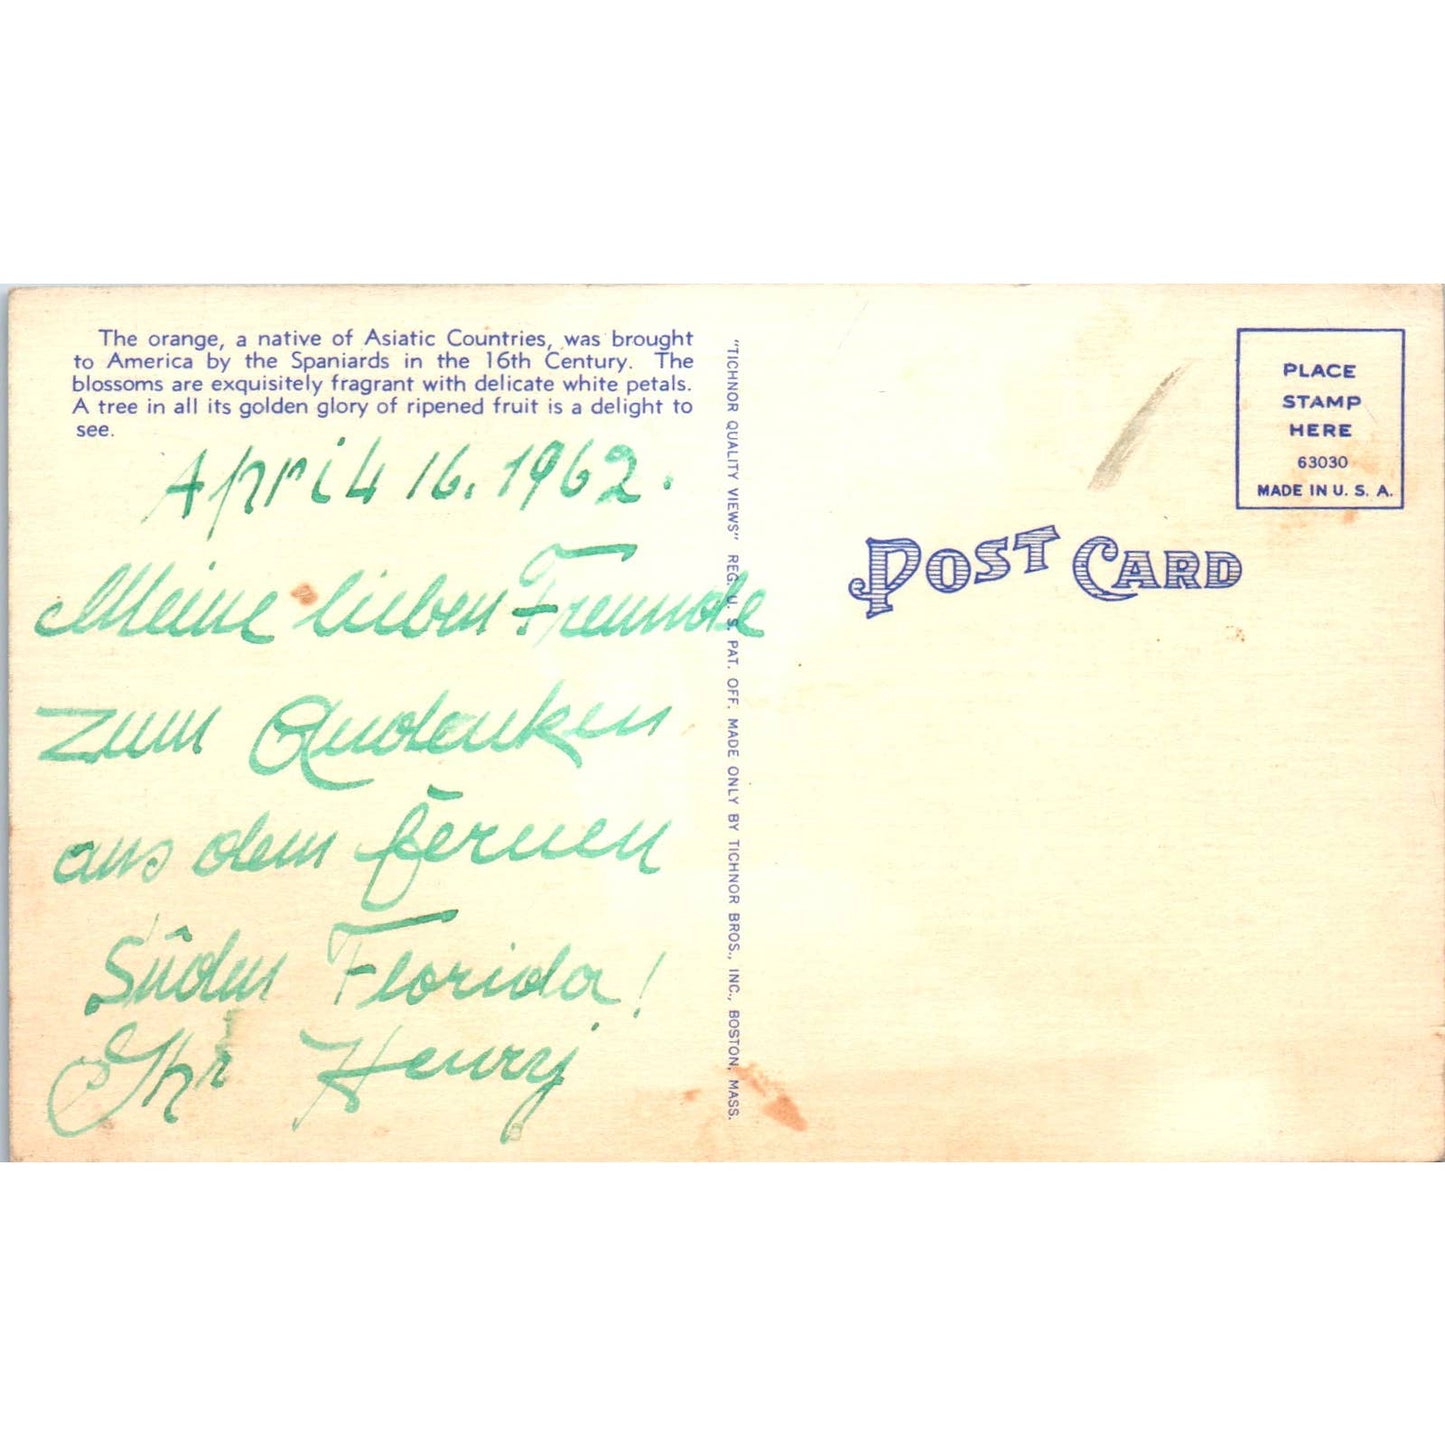 The orange, a native of Asiatic Countries, was brought
to America by the Spaniards in the 16th Century. The
blossoms are exquisitely fragrant with delicate white petals.
A tree in all its golden glory of ripened fruit is a delight to
see.
April 16. 1962.
Meine lieben Freunde
zum Andenken
aus dem fernen
Süden Florida!
Ihr Henry
"TICHNOR QUALITY VIEWS" REG. U. S. PAT. OFF. MADE ONLY BY TICHNOR BROS., INC., BOSTON, MASS.
POST CARD
PLACE
STAMP
HERE
63030
MADE IN U. S. A.